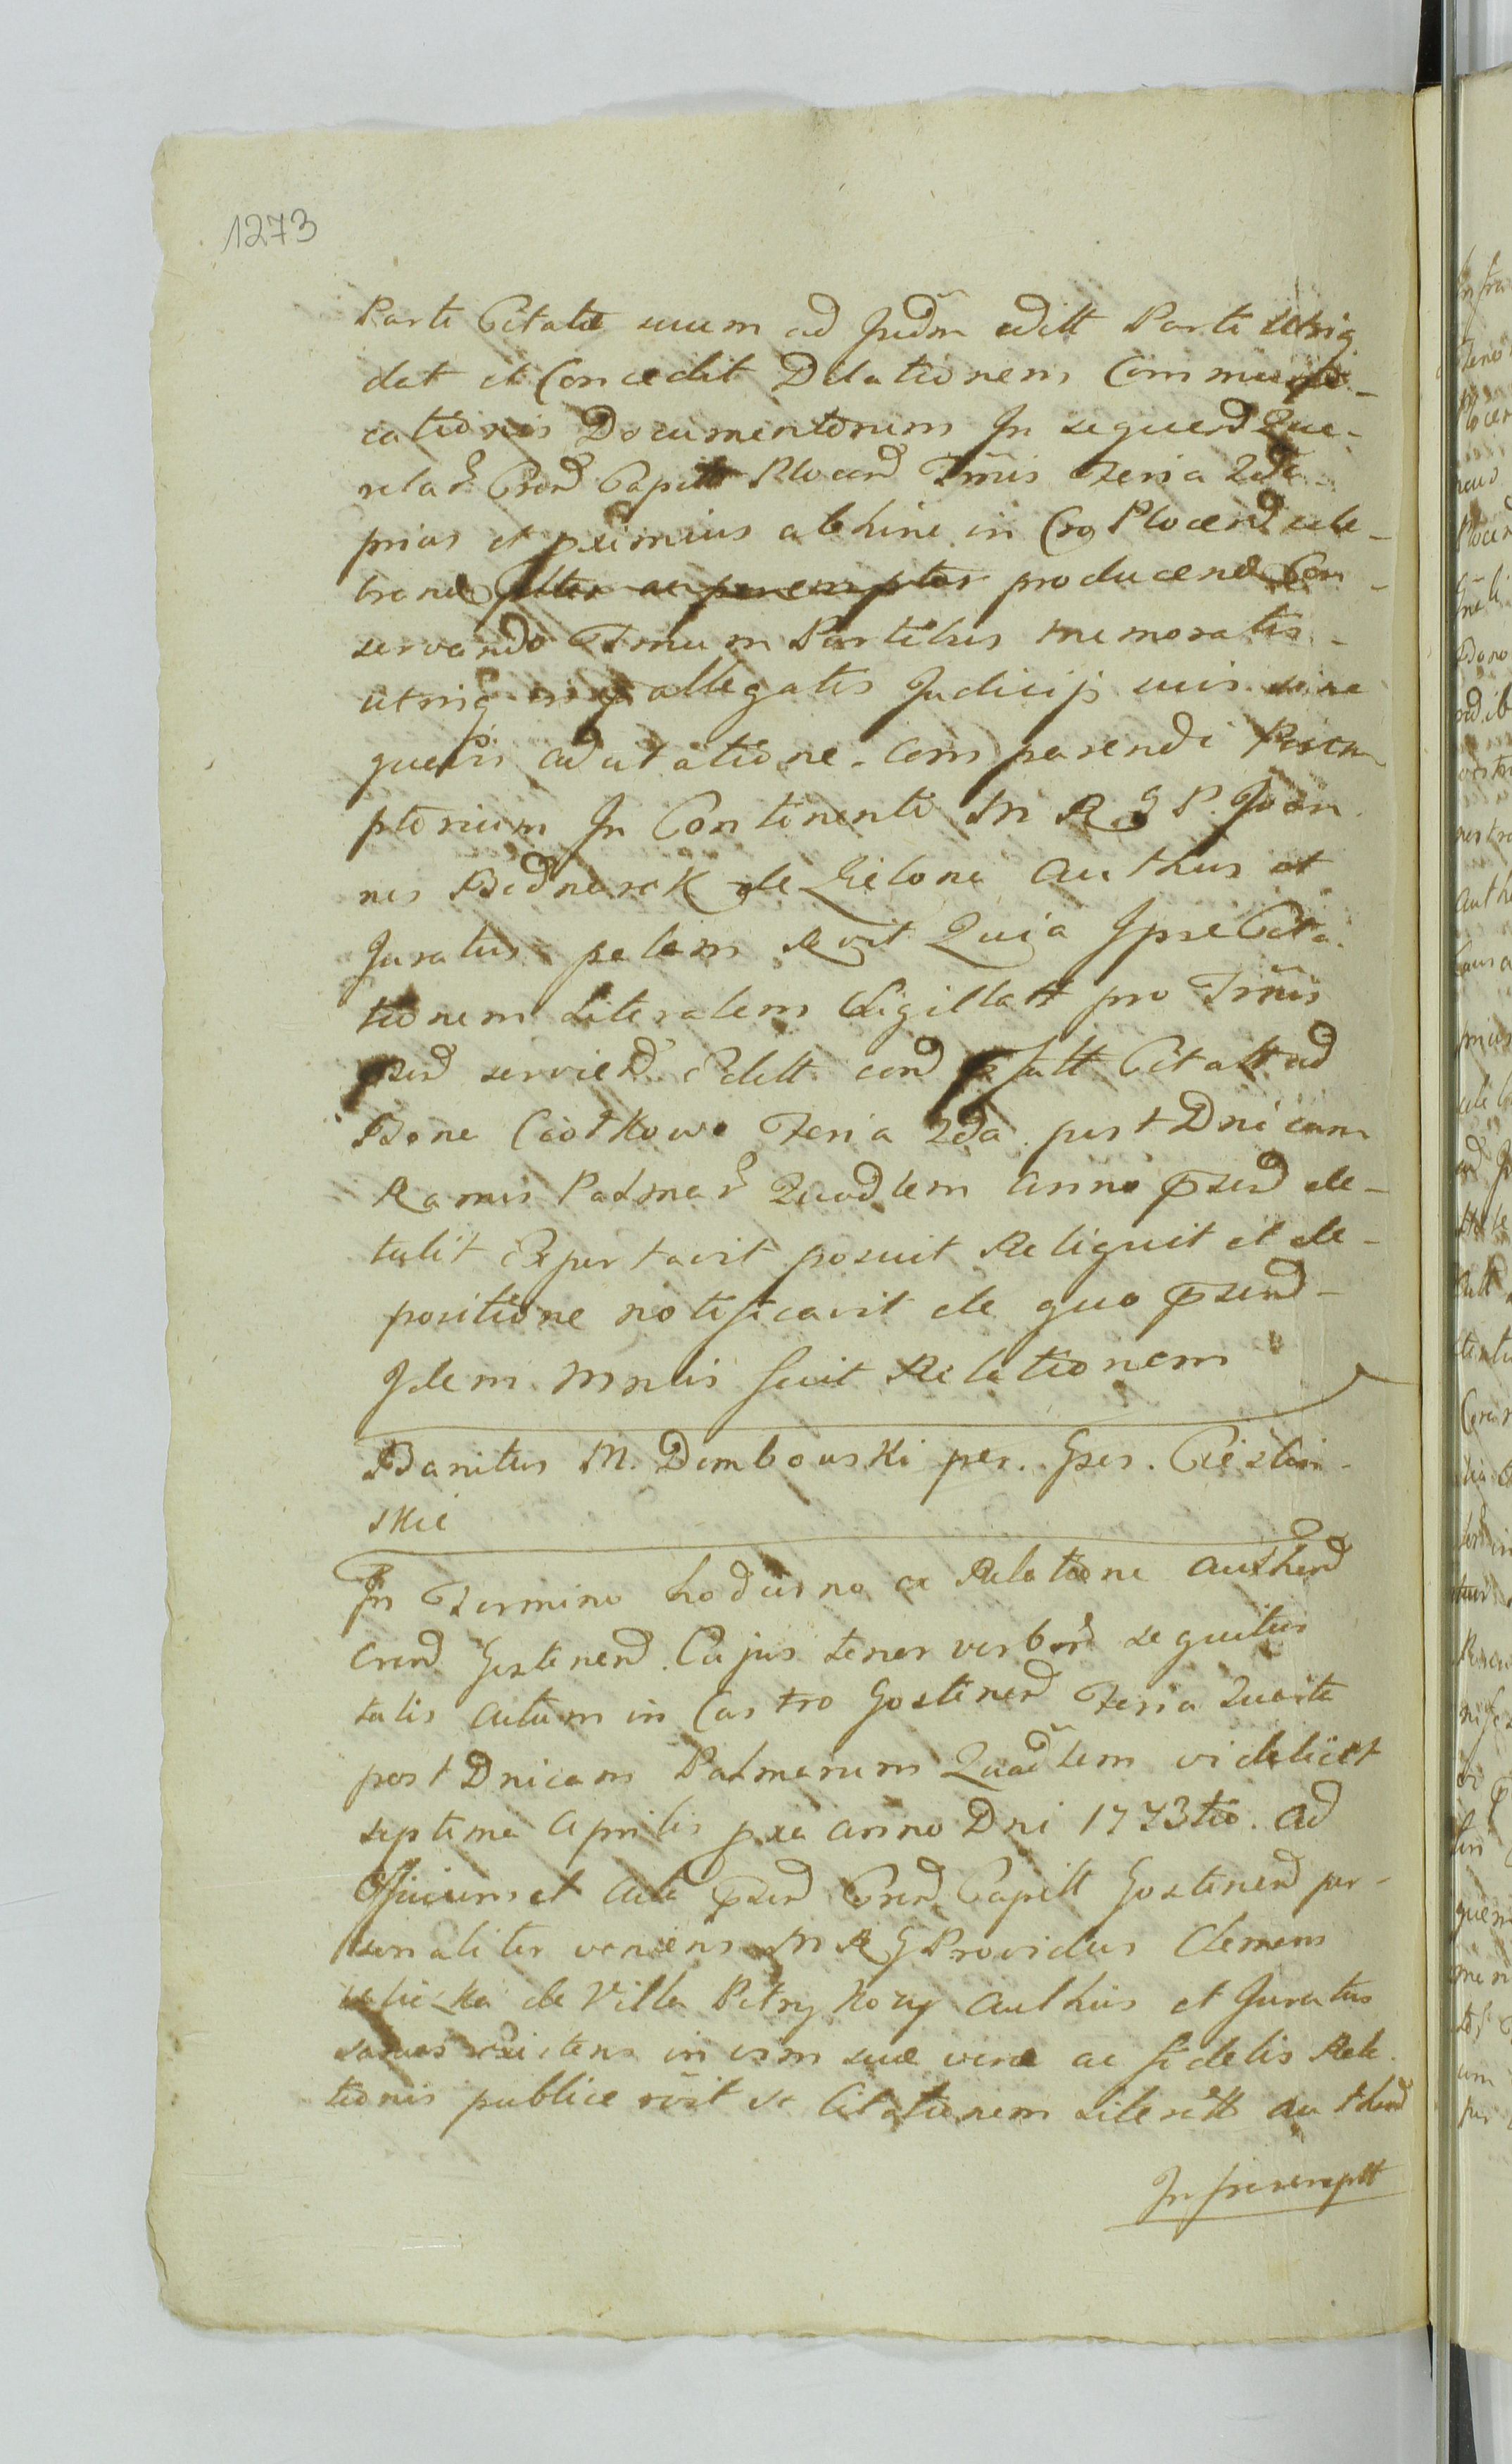 1273
Parti Citatæ suum ad Judm editt Parti utriq
dat et Concedit Dilationem Communi-
cationis Documentorum In sequend Que-
relar Crend Capitt Plocend Tmis Feria 2da
prius et pximius abhinc in Cro Plocend cele-
brand producend Con-
servando Tmum Partibus memoratis
utriq allegatis Judicijs suis sine
quavis adcitatione comparendi Perem
ptorium In Continenti M R G P. Joan
nes Bednarek de Zielona Authus et
Juratus palam Rvit Quia Ipse Cita-
tionem Literalem Sigillatt pro Tmis
psend serviend Editt Citatt ad
Bona Ciołkowo Feria 2da post Dnicam
Ramis Palmar Quadlem anno psend de-
tulit Exportavit posuit Reliquit et de
positione notificavit de quo psend
Idem Mnlis fecit Relationem
Banitus M. Dembowski per. Gser. Cieslin-
skie
In Termino hodierno ex Relatione Authend
Crend Gostinend Cujus tenor verbor sequitur
talis Actum in Castro Gostinend Feria Quarta
post Dnicam Palmarum Quadlem videlicet
septima Aprilis pxa anno Dni 1773tio. Ad
Officium et Acta psend Crend Capitt Gostinend per-
sonaliter veniens M R G Providus Clemens
de Villa Petrykozy Authus et Juratus
sanus existens in vim suæ veræ ac fidelis Rela
tionis publice rvit se Citationem Literatt Authend
Infrascriptt